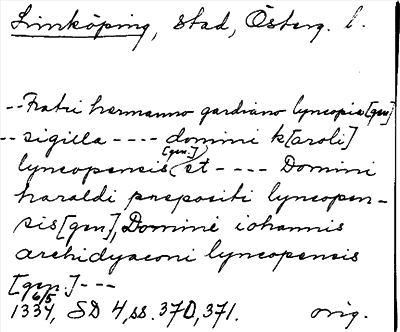 Linköping, stad, Österg. l.
-- Fratri hermanno gardiano lyncopie [gen]
-- sigilla ---- domini k[aroli]
lyncopensis [gen.] et ---- Domini
haraldi prepositi lyncopen-
sis [gen], Domini iohannis
archidyaconi lyncopensis
[gen.] ---
1334, 6/5 SD 4, ss. 370, 371. orig.